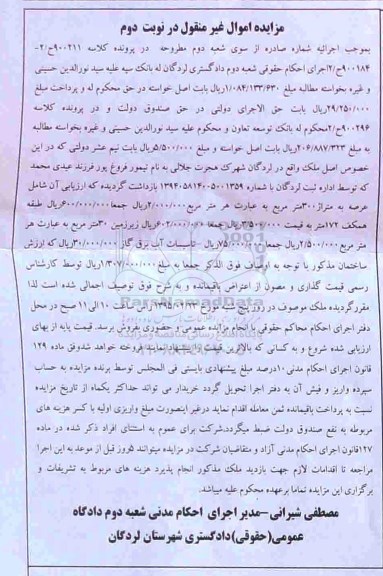 مزایده اموال غیر منقول در نوبت دوم
بموجب اجرائیه شماره صادره از سوی شعبه دوم مطروحه در پرونده کلاسه ۹۰۰۲۱۱ح/۲-
۹۰۰۱۸۴ح/۲اجرای احکام حقوقی شعبه دوم دادگستری لردگان له بانک سپه علیه سید نورالدین حسینی
و غیره بخواسته مطالبه مبلغ ۱/۰۸۴/۱۳۳/۶۳۰ریال بابت اصل خواسته در حق محکوم له و پرداخت مبلغ
۲۹/۲۵۰/۰۰۰ریال بابت حق الاجرای دولتی در حق صندوق دولت و در پرونده کلاسه
۹۰۰۲۹۶ح/۲محکوم له بانک توسعه تعاون و محکوم علیه سید نورالدین حسینی و غیره بخواسته مطالبه
به مبلغ ۲۰۶/۸۸۷/۳۲۳ریال بابت اصل خواسته و مبلغ ۵/۵۰۰/۰۰۰ریال بابت نیم عشر دولتی که در این
خصوص اصل ملک واقع در لردگان شهرک هجرت جلالی به نام تیمور فروغ پور فرزند عیدی محمد
که توسط اداره ثبت لردگان با شماره ۱۳۹۴۰۵۸۱۴۰۰۵۰۰۱۳۵۹ بازداشت گردیده که ارزیابی آن شامل
عرصه به متراژ۳۰۰متر مربع به عبارت هر متر مربع۲/۰۰۰/۰۰۰ریال جمعا۶۰۰/۰۰۰/۰۰۰ریال طبقه
همکف ۱۷۲متر به قیمت ۳/۵۰۰/۰۰۰ریال جمعا ۶۰۲/۰۰۰/۰۰۰ریال زیرزمین ۳۰متر مربع به عبارت هر
متر مربع۲/۵۰۰/۰۰۰ریال جمعا۷۵/۰۰۰/۰۰۰ریال تاسیسات آب برق گاز ۳۰/۰۰۰/۰۰۰ریال که ارزش
ساختمان مذکور با توجه به اوصاف فوق الذکر جمعا به مبلغ ۱/۳۰۷/۰۰۰/۰۰۰ریال توسط کارشناس
رسمی قیمت گذاری و مصون از اعتراض باقیمانده و به شرح فوق توصیف اجمالی شده است لذا
مقررگردیده ملک موصوف در روز پنج شنبه مورخ راس ساعت ۱۰الی۱۱ صبح در محل
دفتر اجرای احکام محاکم حقوقی با انجام مزایده عمومی و حضوری بفروش برسد. قیمت پایه از بهای
ارزیابی شده شروع و به کسانی که بالاترین قیمت را پیشنهاد نمایند فروخته خواهد شدوفق ماده ۱۲۹
قانون اجرای احکام مدنی ۱۰درصد مبلغ پیشنهادی بایستی فی المجلس توسط برنده مزایده به حساب
سپرده واریز و فیش آن به دفتر اجرا تحویل گردد خریدار می تواند حداکثر یکماه از تاریخ مزایده
نسبت به پرداخت باقیمانده ثمن معامله اقدام نماید درغیر اینصورت مبلغ واریزی اولیه با کسر هزینه های
مربوطه به نفع صندوق دولت ضبط میگردد.شرکت برای عموم به استثنای افراد ذکر شده در ماده
۱۲۷قانون اجرای احکام مدنی آزاد و متقاضیان شرکت در مزایده میتوانند ۵روز قبل از موعد به این اجرا
مراجعه تا اقدامات لازم جهت بازدید ملک مذکور انجام پذیرد هزینه های مربوط به تشریفات و
برگزاری این مزایده تماما برعهده محکوم علیه میباشد.
مصطفی شیرانی-مدیر اجرای احکام مدنی شعبه دوم دادگاه
عمومی(حقوقی)دادگستری شهرستان لردگان